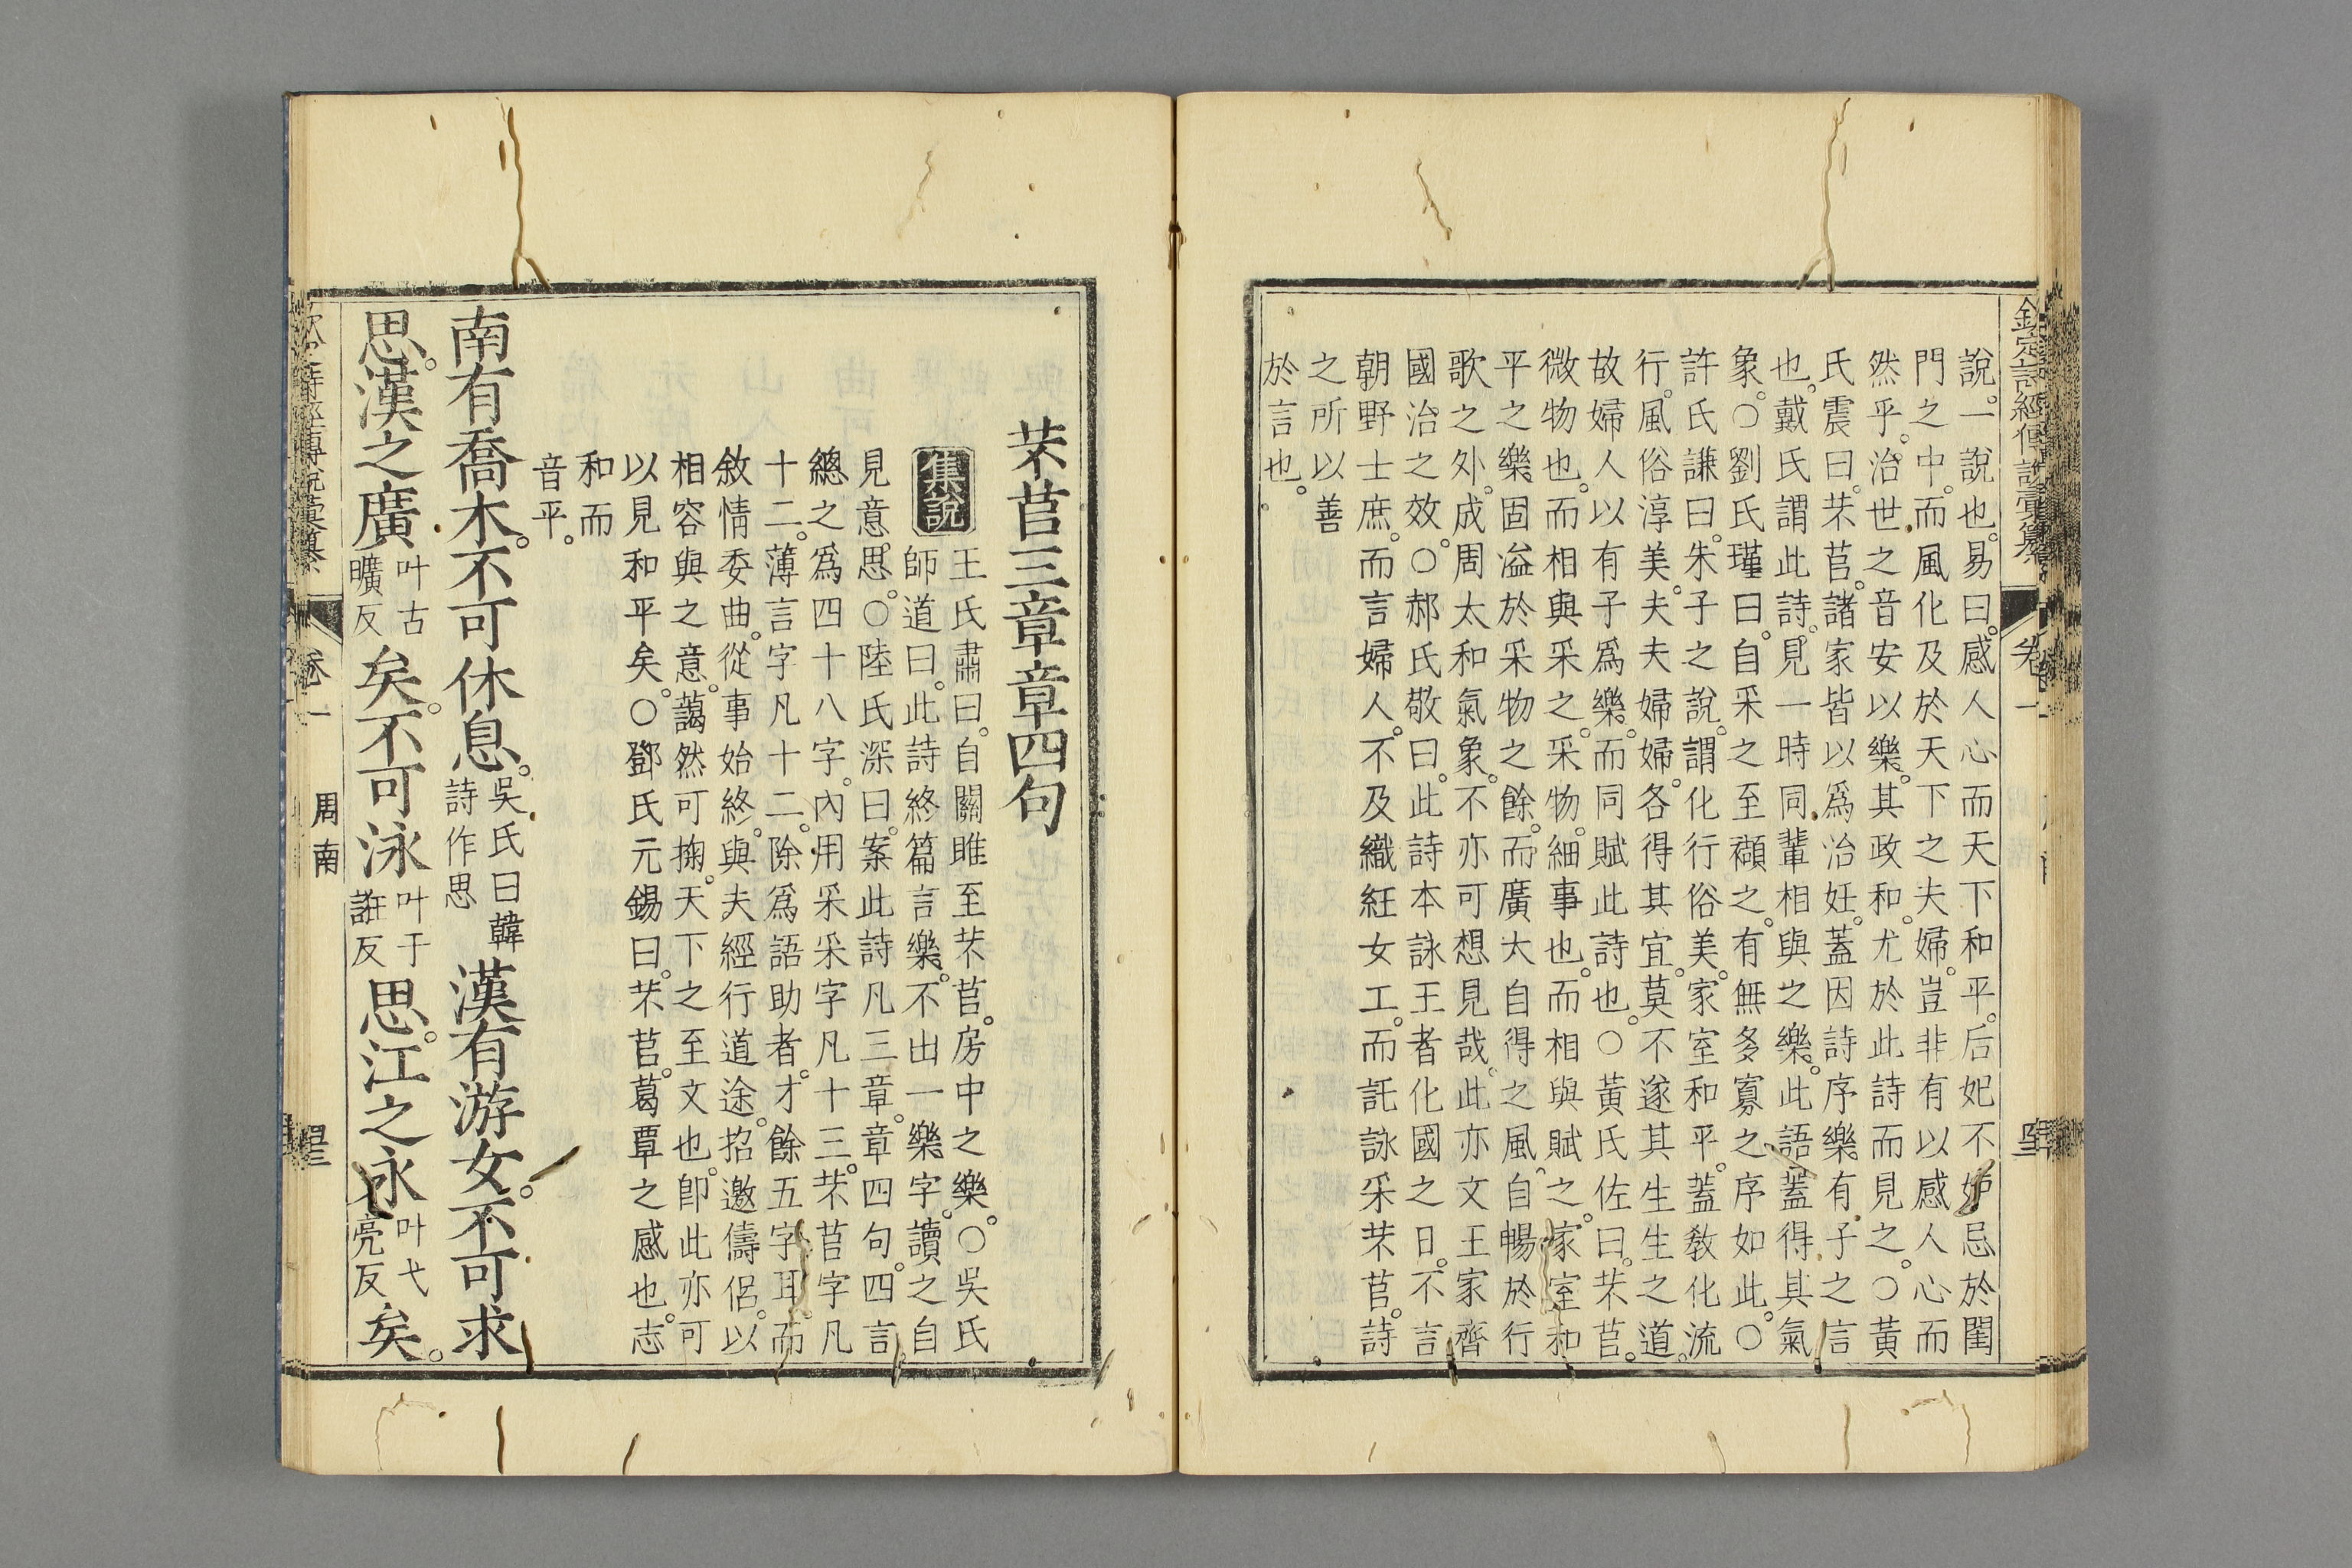 欽定詩經傳說彙纂 卷一
說。一說也。易曰。感人心而天下和平。后妃不妒忌於閨
門之中。而風化及於天下之夫婦。豈非有以感人心而
然乎。治世之音安以樂。其政和。尤於此詩而見之。○黃
氏震曰。芣苢。諸家皆以爲治妊。蓋因詩序樂有子之言
也。戴氏謂此詩。見一時同輩相與之樂。此語蓋得其氣
象。○劉氏瑾曰。自采之至襭之。有無多寡之序如此。○
許氏謙曰。朱子之說。謂化行俗美。家室和平。蓋敎化流
行。風俗淳美。夫夫婦婦。各得其宜。莫不遂其生生之道。
故婦人以有子爲樂。而同賦此詩也。○黃氏佐曰。芣苢。
微物也。而相與采之。采物。細事也。而相與賦之。家室和
平之樂。固溢於采物之餘。而廣大自得之風。自暢於行
歌之外。成周太和氣象。不亦可想見哉。此亦文王家齊
國治之效。○郝氏敬曰。此詩本詠王者化國之日。不言
朝野士庶。而言婦人。不及織紝女工。而託詠采芣苢。詩
之所以善
於言也。
芣苢三章章四句
集說 王氏肅曰。自關雎至芣苢。房中之樂。○吳氏
師道曰。此詩終篇言樂。不出一樂字。讀之自
見意思。○陸氏深曰。案此詩凡三章。章四句。四言
總之爲四十八字。內用采采字凡十三。芣苢字凡
十二。薄言字凡十二。除爲語助者。才餘五字耳。而
敘情委曲。從事始終。與夫經行道途。招邀儔侶。以
相容與之意。藹然可掬。天下之至文也。卽此亦可
以見和平矣。○鄧氏元錫曰。芣苢。葛覃之感也。志
和而
音平。
南有喬木。不可休息。吳氏曰韓詩作思 漢有游女。不可求
思。漢之廣叶古曠反矣。不可泳叶于誑反思。江之永叶弋亮反矣。
欽定詩經傳說彙纂 卷一 周南